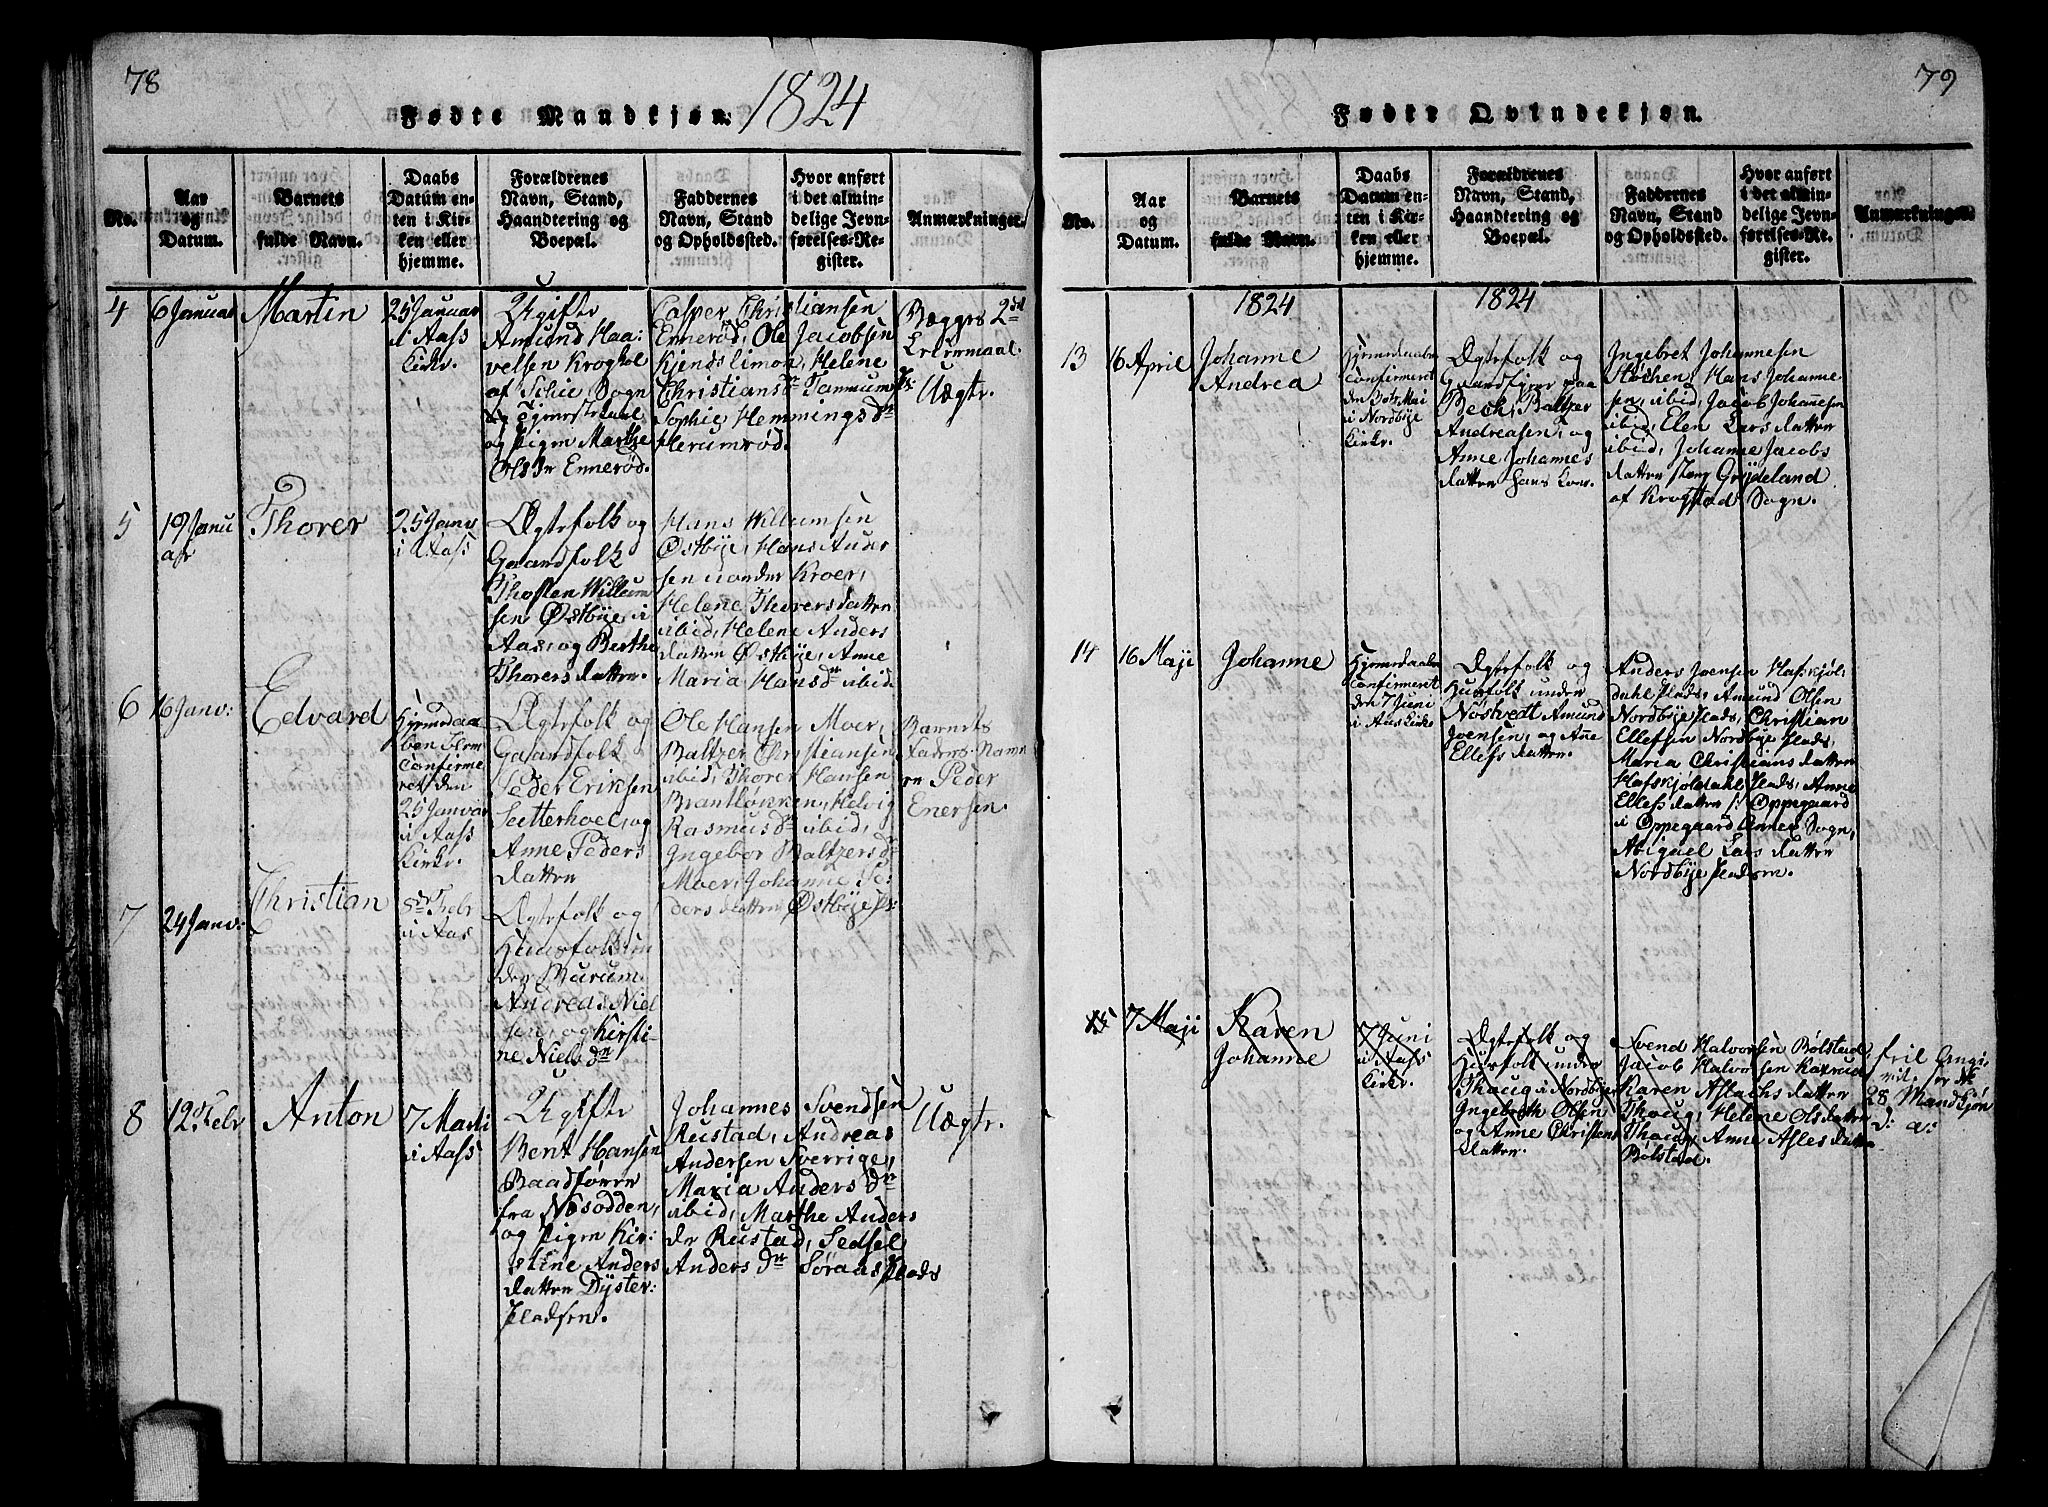 78
Fødte Mandkjøn. 1824
No.
Aar
og
Datum.
Barnets
fulde Navn.
Daabs
Datum en-
ten i Kir-
ken eller
hjemme.
Forældrenes
Navn, Stand,
Haandtering og
Boepæl.
Faddernes
Navn, Stand
og Opholdssted.
Hvor anført
i det almin-
delige Jevn-
førelses-Re-
gister.
Anmærkninger.
4
6 Januar
Martin
25 Januar
i Aass
Kirke.
Ugifte
Amund Haa:
velsen Kroghol
af Schie Sogn
og Pigen Marthe
Ols Dr Ennerød.
Casper Christiansen
Ennerød, Ole Jacobsen
Kjendslimon, Helene
Christians Dr Tammum
Sophie Hemmings Dr
Herumrød.
Begges 2det
Leiermaal.
Uægte.
5
19 Janu
ar
Thorer
25 Janv
i Aass
Ægtefolk og
Gaardfolk
Thosten Willum
sen Østbye i
Aas, og Berthe
Thorers datter.
Hans Willumsen
Østbye, Hans Ander
sen under Kroer,
Helene Thorersdatter
ibid, Helene Anders
datter Østbye, Anne
Maria Hansdr ibid
6
16 Janv:
Edvard
Hjemedaa
ben
Confirme
ret den
25 Janvar
i Aass
Kirke.
Ægtefolk og
Gaardfolk
Peder Eriksen
Seetterhoel, og
Anne Peders
datter
Ole Hansen Moer,
Baltzer Christiansen
ibid, Thorer Hansen
Brantløkken, Helvig
Rasmus Dr ibid,
Ingebor Baltzers Dr
Moer, Johanne Pe:
ders datter Østbye
Barnets
Faders Navn
er Peder
Enersen.
7
24 Janv:
Christian
8de Febr
i Aas
Ægtefolk og
Huusfolk un
der Burum
Andreas Niel
sen, og Kirsti
ne Niels Dr
8
12 Febr
Anton
7 Marti
i Aass
Ugifte
Bent Hansen
Baadfører
fra Nesodden,
og Pigen Kir:
stine Anders
datter Dyster:
Pladsen.
Johannes Svendsen
Rustad, Andreas
Andersen Sverrige,
Maria Anders Dr
ibid, Marthe Anders
Dr Rustad, Sedsel
Anders Dr Søraas Plads
Uægte.
79
Fødte Qvindekjøn.
No.
Aar
og
Datum.
Barnets
fulde Navn.
Daabs
Datum en-
ten i Kir-
ken eller
hjemme.
Forældrenes
Navn, Stand,
Haandtering og
Boepæl.
Faddernes
Navn, Stand
og Opholdssted.
Hvor anført
i det almin-
delige Jevn-
førelses-Re-
gister.
Anmærkninger.
1824
1824
13
16 April
Johanne
Andrea
Hjemedaaben
Confirmeret
den Maii
i Nordbye
Kirke.
Ægtefolk og
Gaardfolk paa
Bech, Baltzer
Andreasen, og
Anne Johannes
datter hans Kone.
Ingebret Johannesen
Støchen, Hans Johanne
sen, ibid, Jacob Johannesen
ibid, Elen Lars datter
ibid, Johanne Jacobs
datter Grydeland
af Krogstad Sogn.
14
16 Maji
Johanne
Hjemedaaben
Confirmeret
den 7 Juni
i Aas Kirke
Ægtefolk og
Husfolk under
Nøstvedt Amund
Joensen, og Anne
Ellefs datter.
Anders Joensen Hafskjøl:
dahl Plads, Amund Olsen
Nordbye Plads, Christian
Ellefsen Nordbye Plads,
Maria Christians datter
Hafskjøldahl Plads, Anne
Ellefs datter Oppegaard
i Oppegaard Annex Sogn,
Abigael Lars datter
Nordbye Pladsen.
15
7 Maji
Karen
Johanne
7 Juni
i Aass
Kirke.
Ægtefolk og
Husfolk under
Thaug i Nordbye
Ingebreth Olsen
og Anne Christens
datter.
Svend Halvorsen Bølstad,
Jacob Halvorsen Kaxrud
Karen Aslachs datter
Thaug, Helene Ols datter
Thaug, Anne Asles datter
Bølstad.
feil Angi
vit. er No
28 Mandkjøn
D: a: